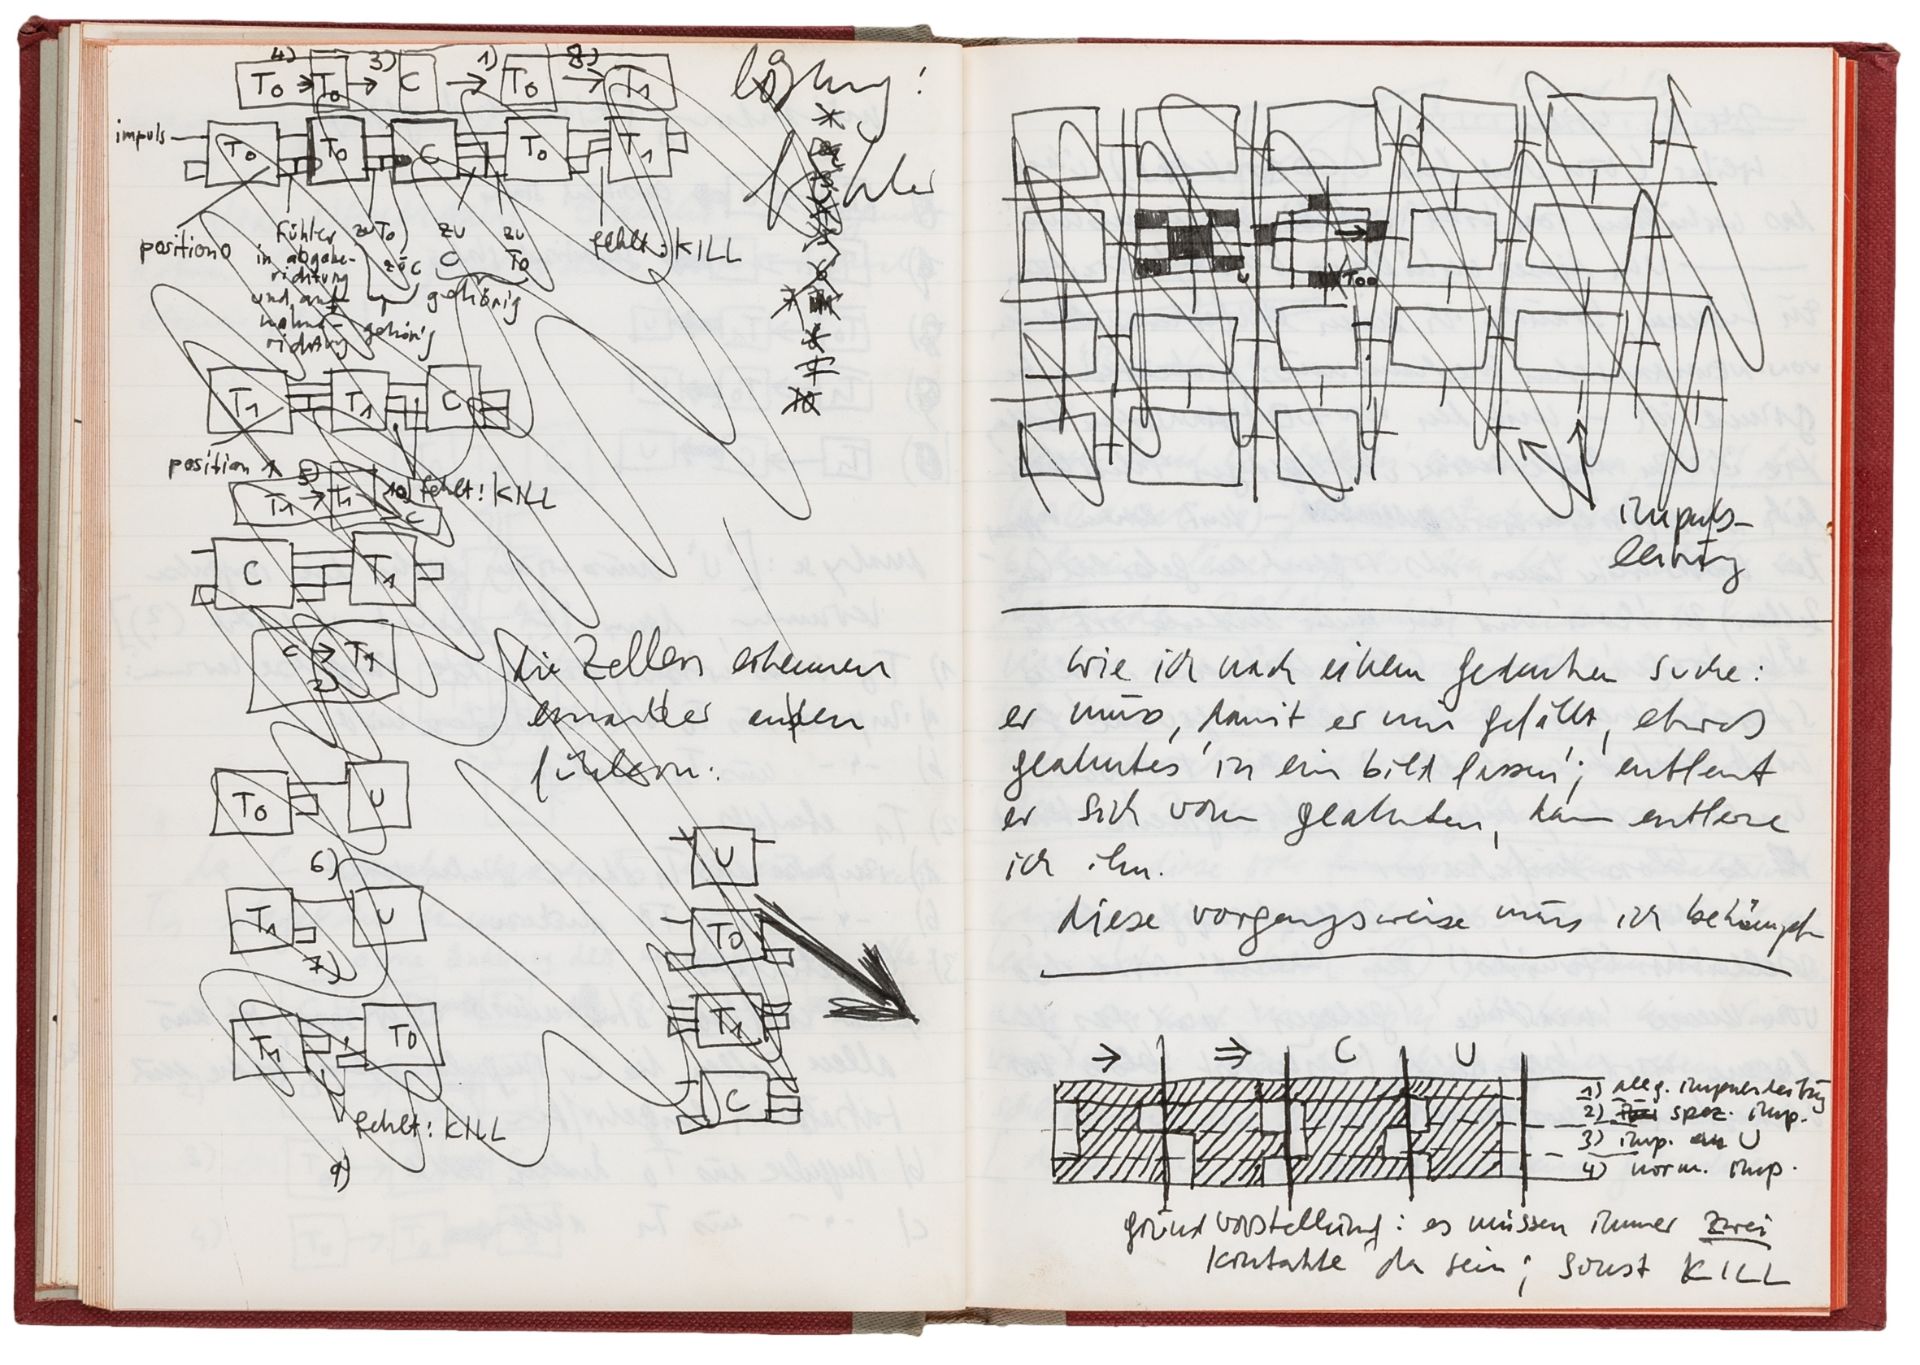 4) 3) 1) 8)
T0 → T0 → C → T0 → T1
lösung:
impuls
T0 T0 C T0 T1
fühler
position 0
fühler
in abgabe-
richtung
und auf-
nahme-
richtung
zu T0
zu C
gehörig
zu
C
zu
T0
gehörig
fehlt: KILL
T1 T1 C
position 1
fehlt: KILL
5) 10)
T1 → T1 → C
C T1
C → T1
2)
die zellen erkennen
einander an den
fühlern:
T0 U
6)
T1 U
7)
T1 T0
fehlt: KILL
9)
U
T0
T1
C
U
T00
impuls-
leitung
wie ich nach einem gedanken suche:
er muss, damit er mir gefällt, etwas
geahntes 'in ein bild fassen'; entfernt
er sich vom geahnten, dann entferne
ich ihn.
diese vorgangsweise muss ich bekämpfen
→ ⇒ C U
1) allg. impulsleitung
2) spez. imp.
3) imp. an U
4) norm. imp.
grundvorstellung: es müssen immer zwei
kontakte da sein; sonst KILL